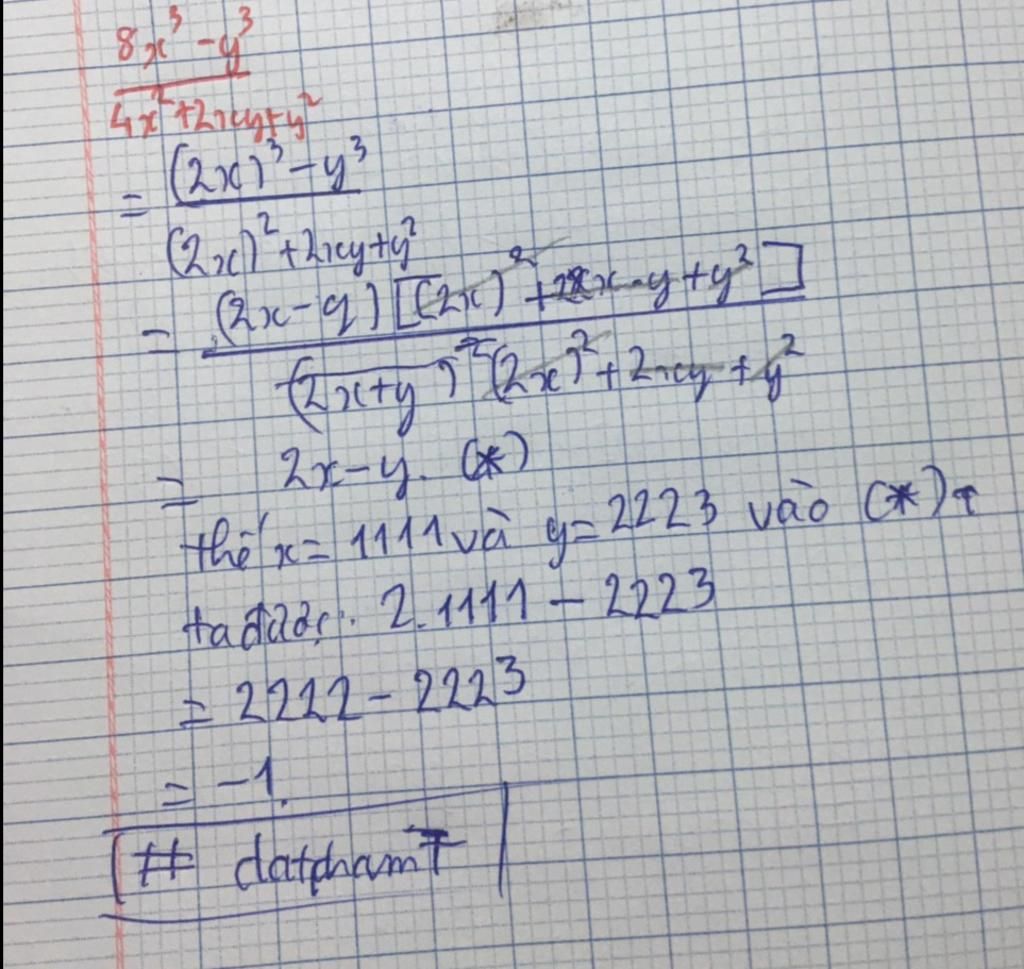 8x³ - y³
4x² + 2xy + y²
= (2x)³ - y³
(2x)² + 2xy + y²
= (2x - y) [(2x)² + 2x.y + y²]
(2x + y)² (2x)² + 2xy + y²
= 2x - y. (*)
thế x = 1111 và y = 2223 vào (*)
ta được: 2.1111 - 2223
= 2222 - 2223
= -1.
# datphamT